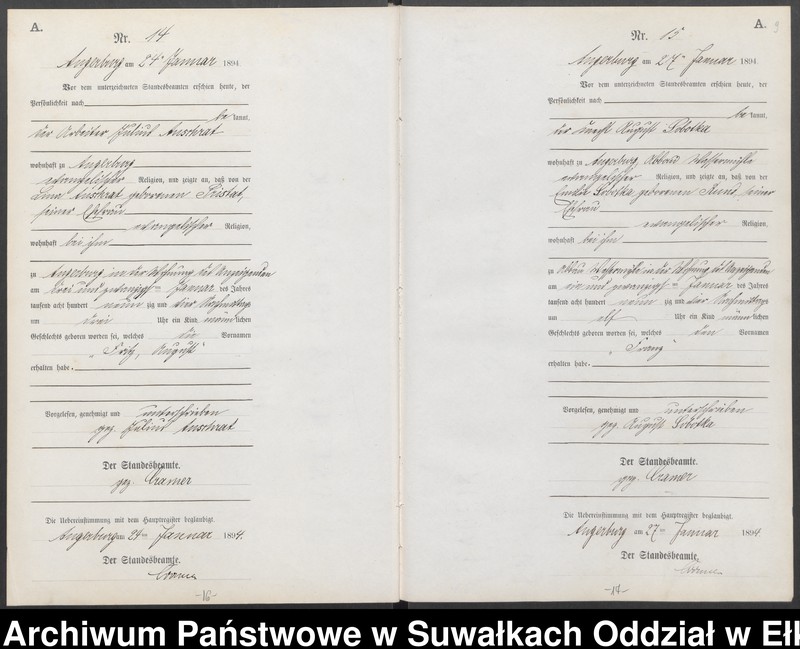 A.
Nr. 14
Angerburg am 24ten Januar 1894.
Vor dem unterzeichneten Standesbeamten erschien heute, der
Persönlichkeit nach
be kannt,
der Arbeiter Julius Anschrat
wohnhaft zu Angerburg
evangelischer Religion, und zeigte an, daß von der
Anschrat geborenen
seiner Ehefrau
evangelischer Religion,
wohnhaft bei ihm
zu Angerburg in der Wohnung des Anzeigenden
am drei und zwanzigsten Januar des Jahres
tausend acht hundert neun zig und vier Nachmittags
um drei Uhr ein Kind männlichen
Geschlechts geboren worden sei, welches die Vornamen
„Fritz, August“
erhalten habe.
Vorgelesen, genehmigt und unterschrieben
gez. Julius Anschrat
Der Standesbeamte.
gez. Cramer
Die Uebereinstimmung mit dem Hauptregister beglaubigt.
Angerburg am 24ten Januar 1894.
Der Standesbeamte.
Cramer
-16-
A. 9
Nr. 15
Angerburg am 27ten Januar 1894
Vor dem unterzeichneten Standesbeamten erschien heute, der
Persönlichkeit nach
be kannt,
der Knecht August Sobottka
wohnhaft zu Angerburg, Abbau
evangelischer Religion, und zeigte an, daß von der
Sobottka, geborenen seiner
Ehefrau
evangelischer Religion,
wohnhaft bei ihm
zu Abbau in der Wohnung des Anzeigenden
am ein und zwanzigsten Januar des Jahres
tausend acht hundert neun zig und vier
um elf Uhr ein Kind männlichen
Geschlechts geboren worden sei, welches den Vornamen
„Franz“
erhalten habe.
Vorgelesen, genehmigt und unterschrieben
gez. August Sobottka
Der Standesbeamte.
gez. Cramer
Die Uebereinstimmung mit dem Hauptregister beglaubigt.
Angerburg am 27ten Januar 1894
Der Standesbeamte.
Cramer
Archiwum Państwowe w Suwałkach Oddział w Ełk